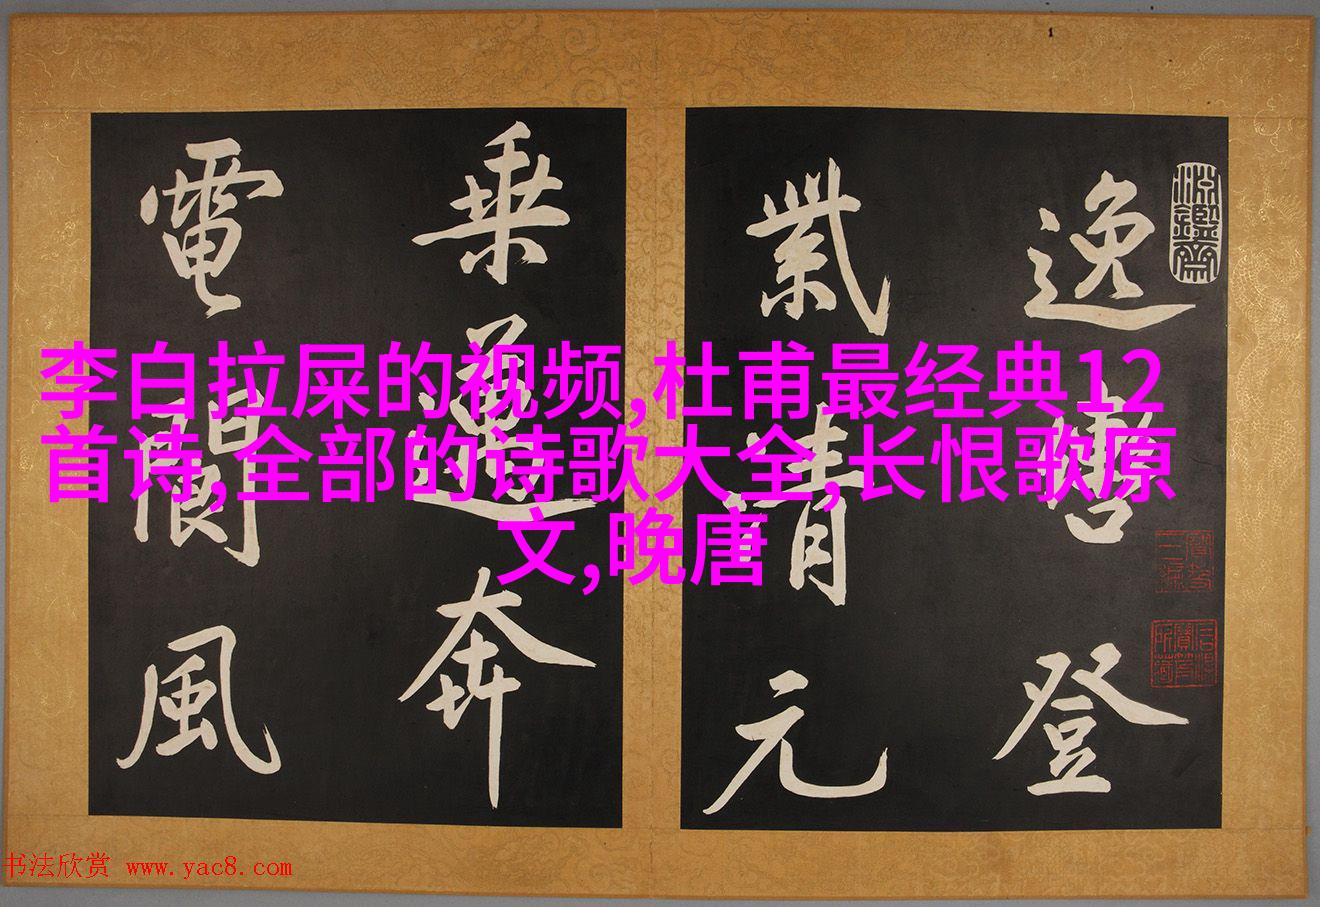 李白拉屎的视频,杜甫最经典12
首诗,全部的诗歌大全,长恨歌原
文,晚唐
逸登
紫清元
乘邁奔
電閬風
书法欣赏 www.yac8.com